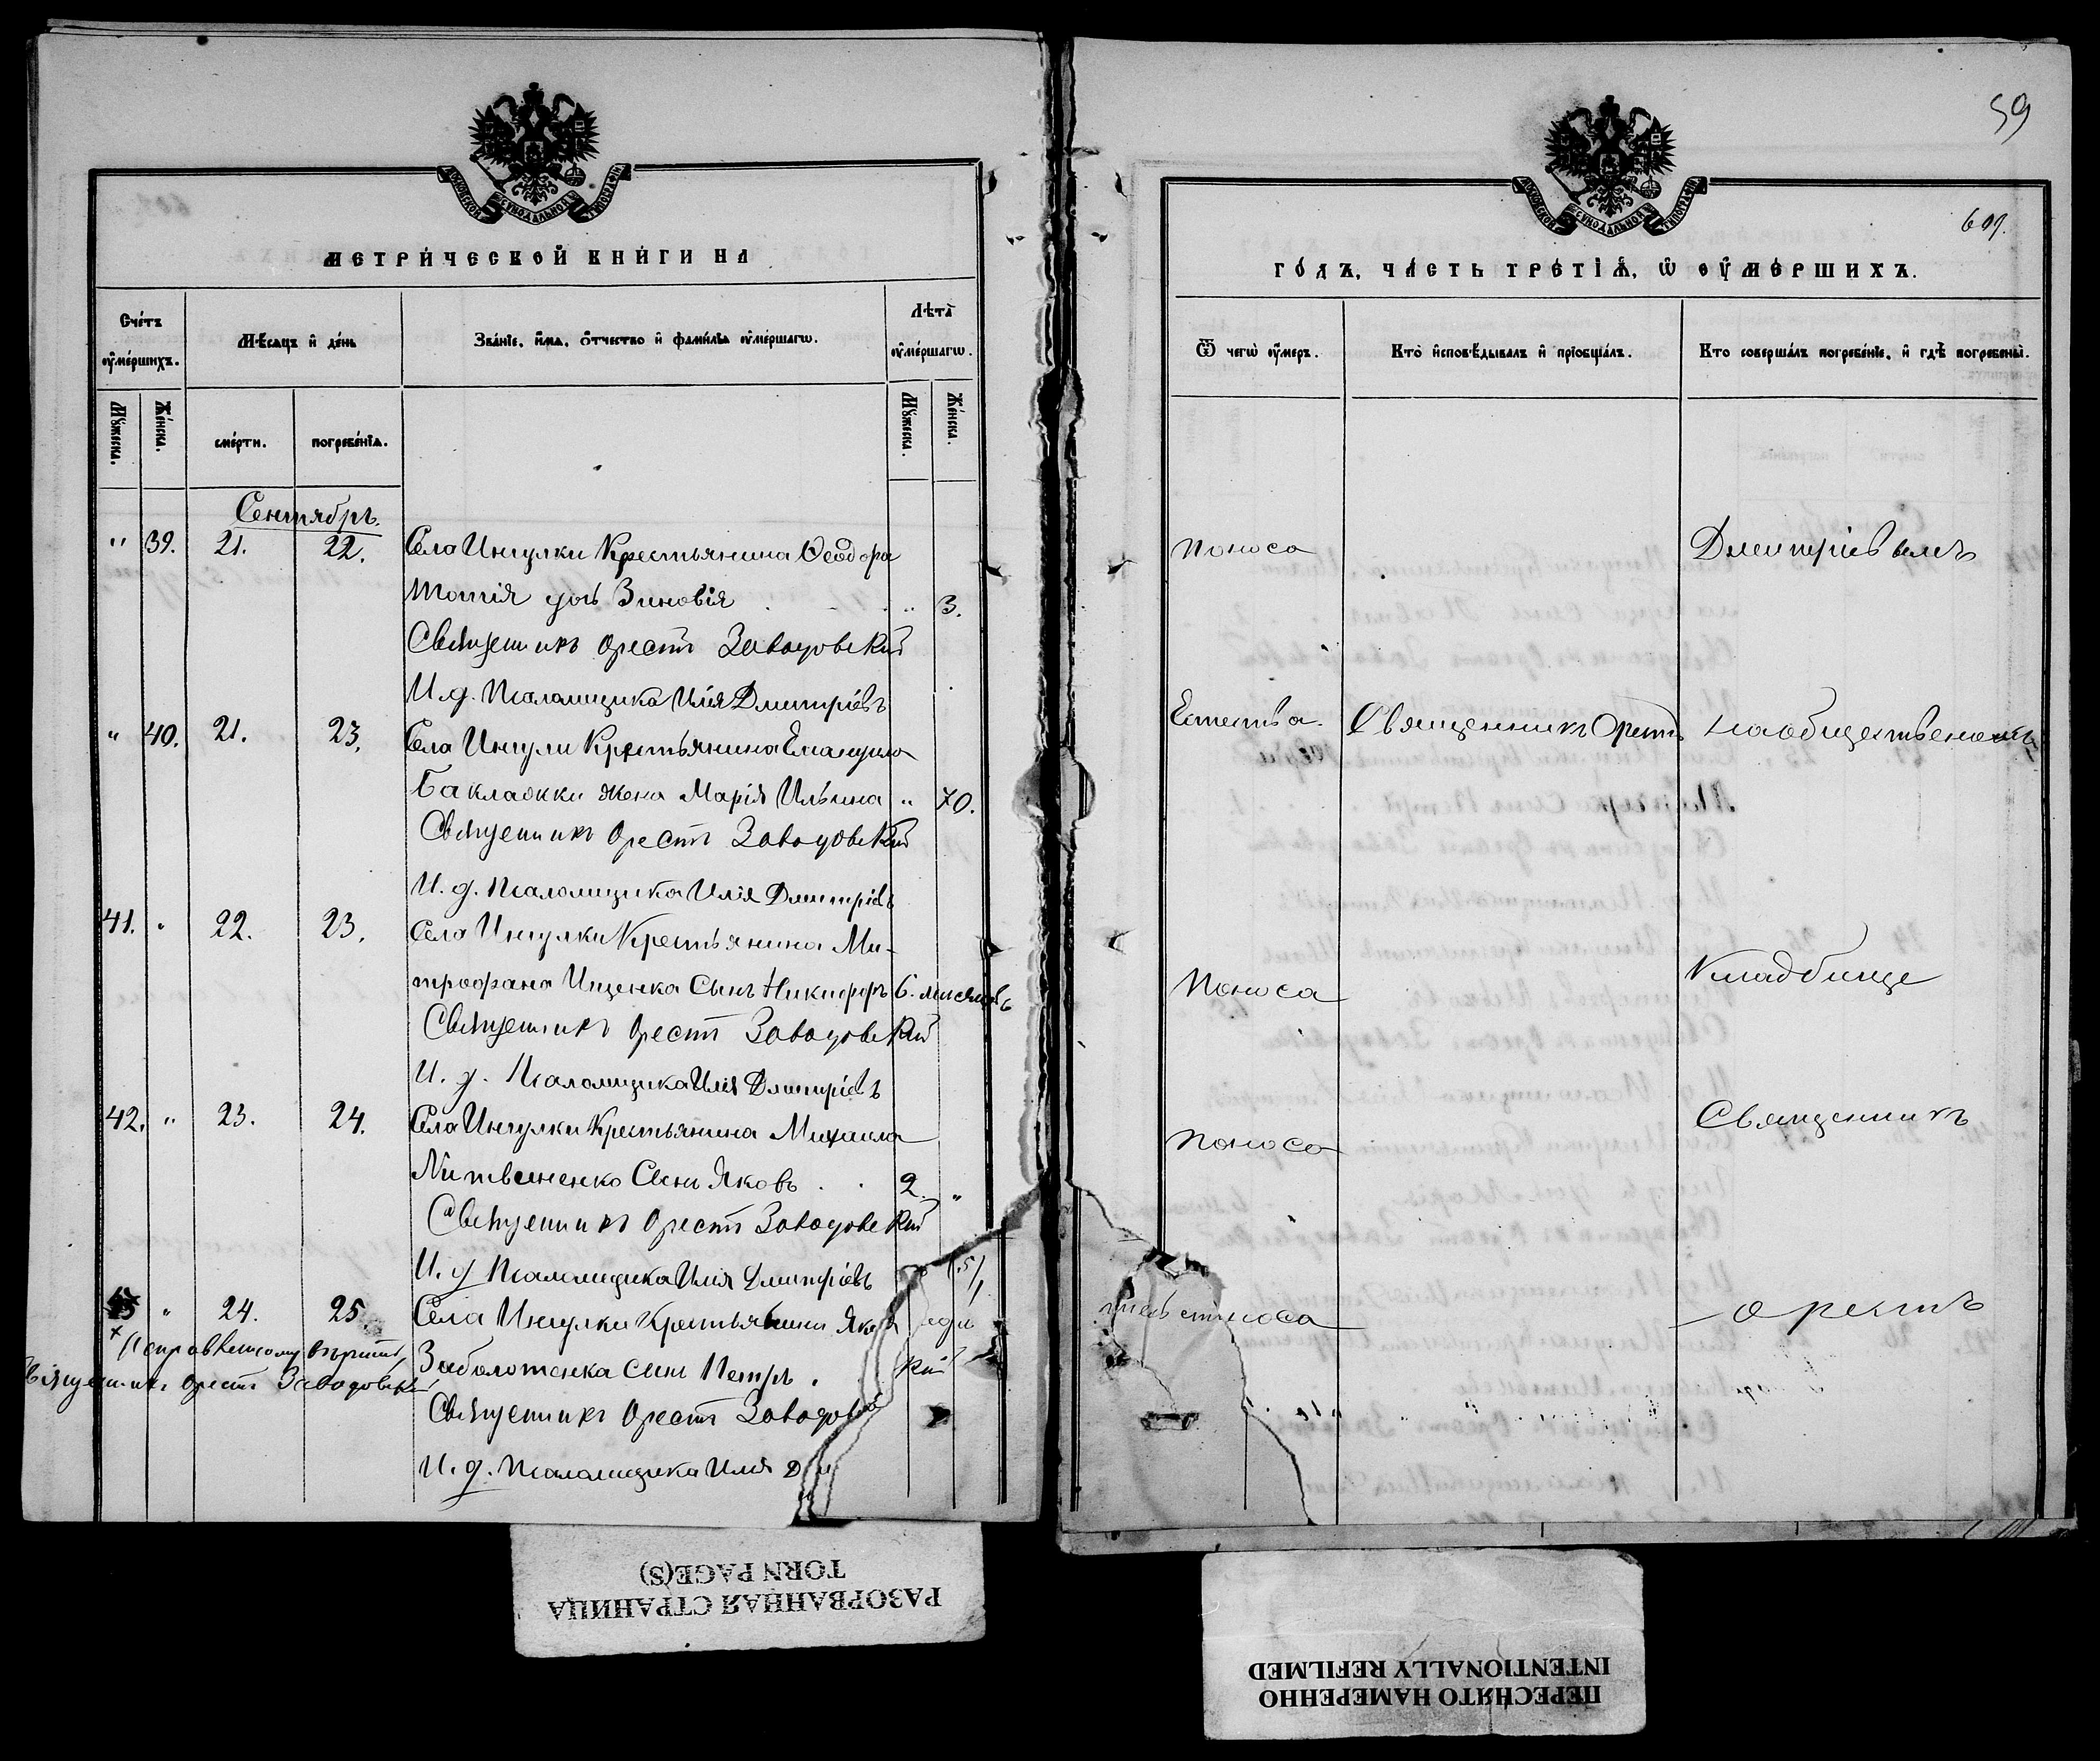 59
607.
МОСКОВСКОЙ СѴНОДАЛЬНОЙ ТИПОГРАФІИ
МЕТРИ́ЧЕСКОЙ КНИ́ГИ НА
Сче́тъ ᲂу҆ме́ршихъ.
Мѣ́сяцъ и҆ де́нь
Зва́нїе, и҆́мѧ, ѻ҆́тчество и҆ фами́лїѧ ᲂу҆ме́ршагѡ.
Лѣ́та ᲂу҆ме́ршагѡ.
Мꙋ́жеска.
Же́нска.
сме́рти.
погребе́нїѧ.
Мꙋ́жеска.
Же́нска.
Сентябрь.
" 39. 21. 22. Села Ингулки Крестьянина Ѳеодора
дочь Зиновія " 3.
Священникъ Орестъ Заводовскій
И. д. Псаломщика Илія Дмитріевъ
" 40. 21. 23. Села Ингулки Крестьянина
Баклажки жена Марія Ильина " 70.
Священникъ Орестъ Заводовскій
И. д. Псаломщика Илія Дмитріевъ
41. " 22. 23. Села Ингулки Крестьянина Ми-
трофана Ищенка Сынъ Никифоръ 6. мѣсяцевъ
Священникъ Орестъ Заводовскій
И. д. Псаломщика Илія Дмитріевъ
42. " 23. 24. Села Ингулки Крестьянина Михаила
Литвиненко Сынъ Яковъ . . 2. "
Священникъ Орестъ Заводовскій
И. д. Псаломщика Илія Дмитріевъ
" 24. 25. Села Ингулки Крестьянина
Заболотенка сынъ Петръ .
Священникъ Орестъ Заводовскій
И. д. Псаломщика Илія
Священникъ Орестъ Заводовскій
МОСКОВСКОЙ СѴНОДАЛЬНОЙ ТИПОГРАФІИ
ГО́ДЪ, ЧА́СТЬ ТРЕ́ТїѦ, Ѡ҆ ОУ҆МЕ́РШИХЪ.
Ѿ чегѡ̀ ᲂу҆́меръ.
Кто̀ и҆сповѣ́дывалъ и҆ прїобща́лъ.
Кто̀ соверша́лъ погребе́нїе, и҆ гдѣ̀ погребены̀.
Поноса
Дмитріевымъ
Естества. Священникъ Орестъ на общественомъ
Поноса
Кладбище
Поноса
Священникъ
поноса
Орестъ
РАЗОРВАННАЯ СТРАНИЦА
TORN PAGE(S)
ПЕРЕСНЯТО НАМЕРЕННО
INTENTIONALLY REFILMED